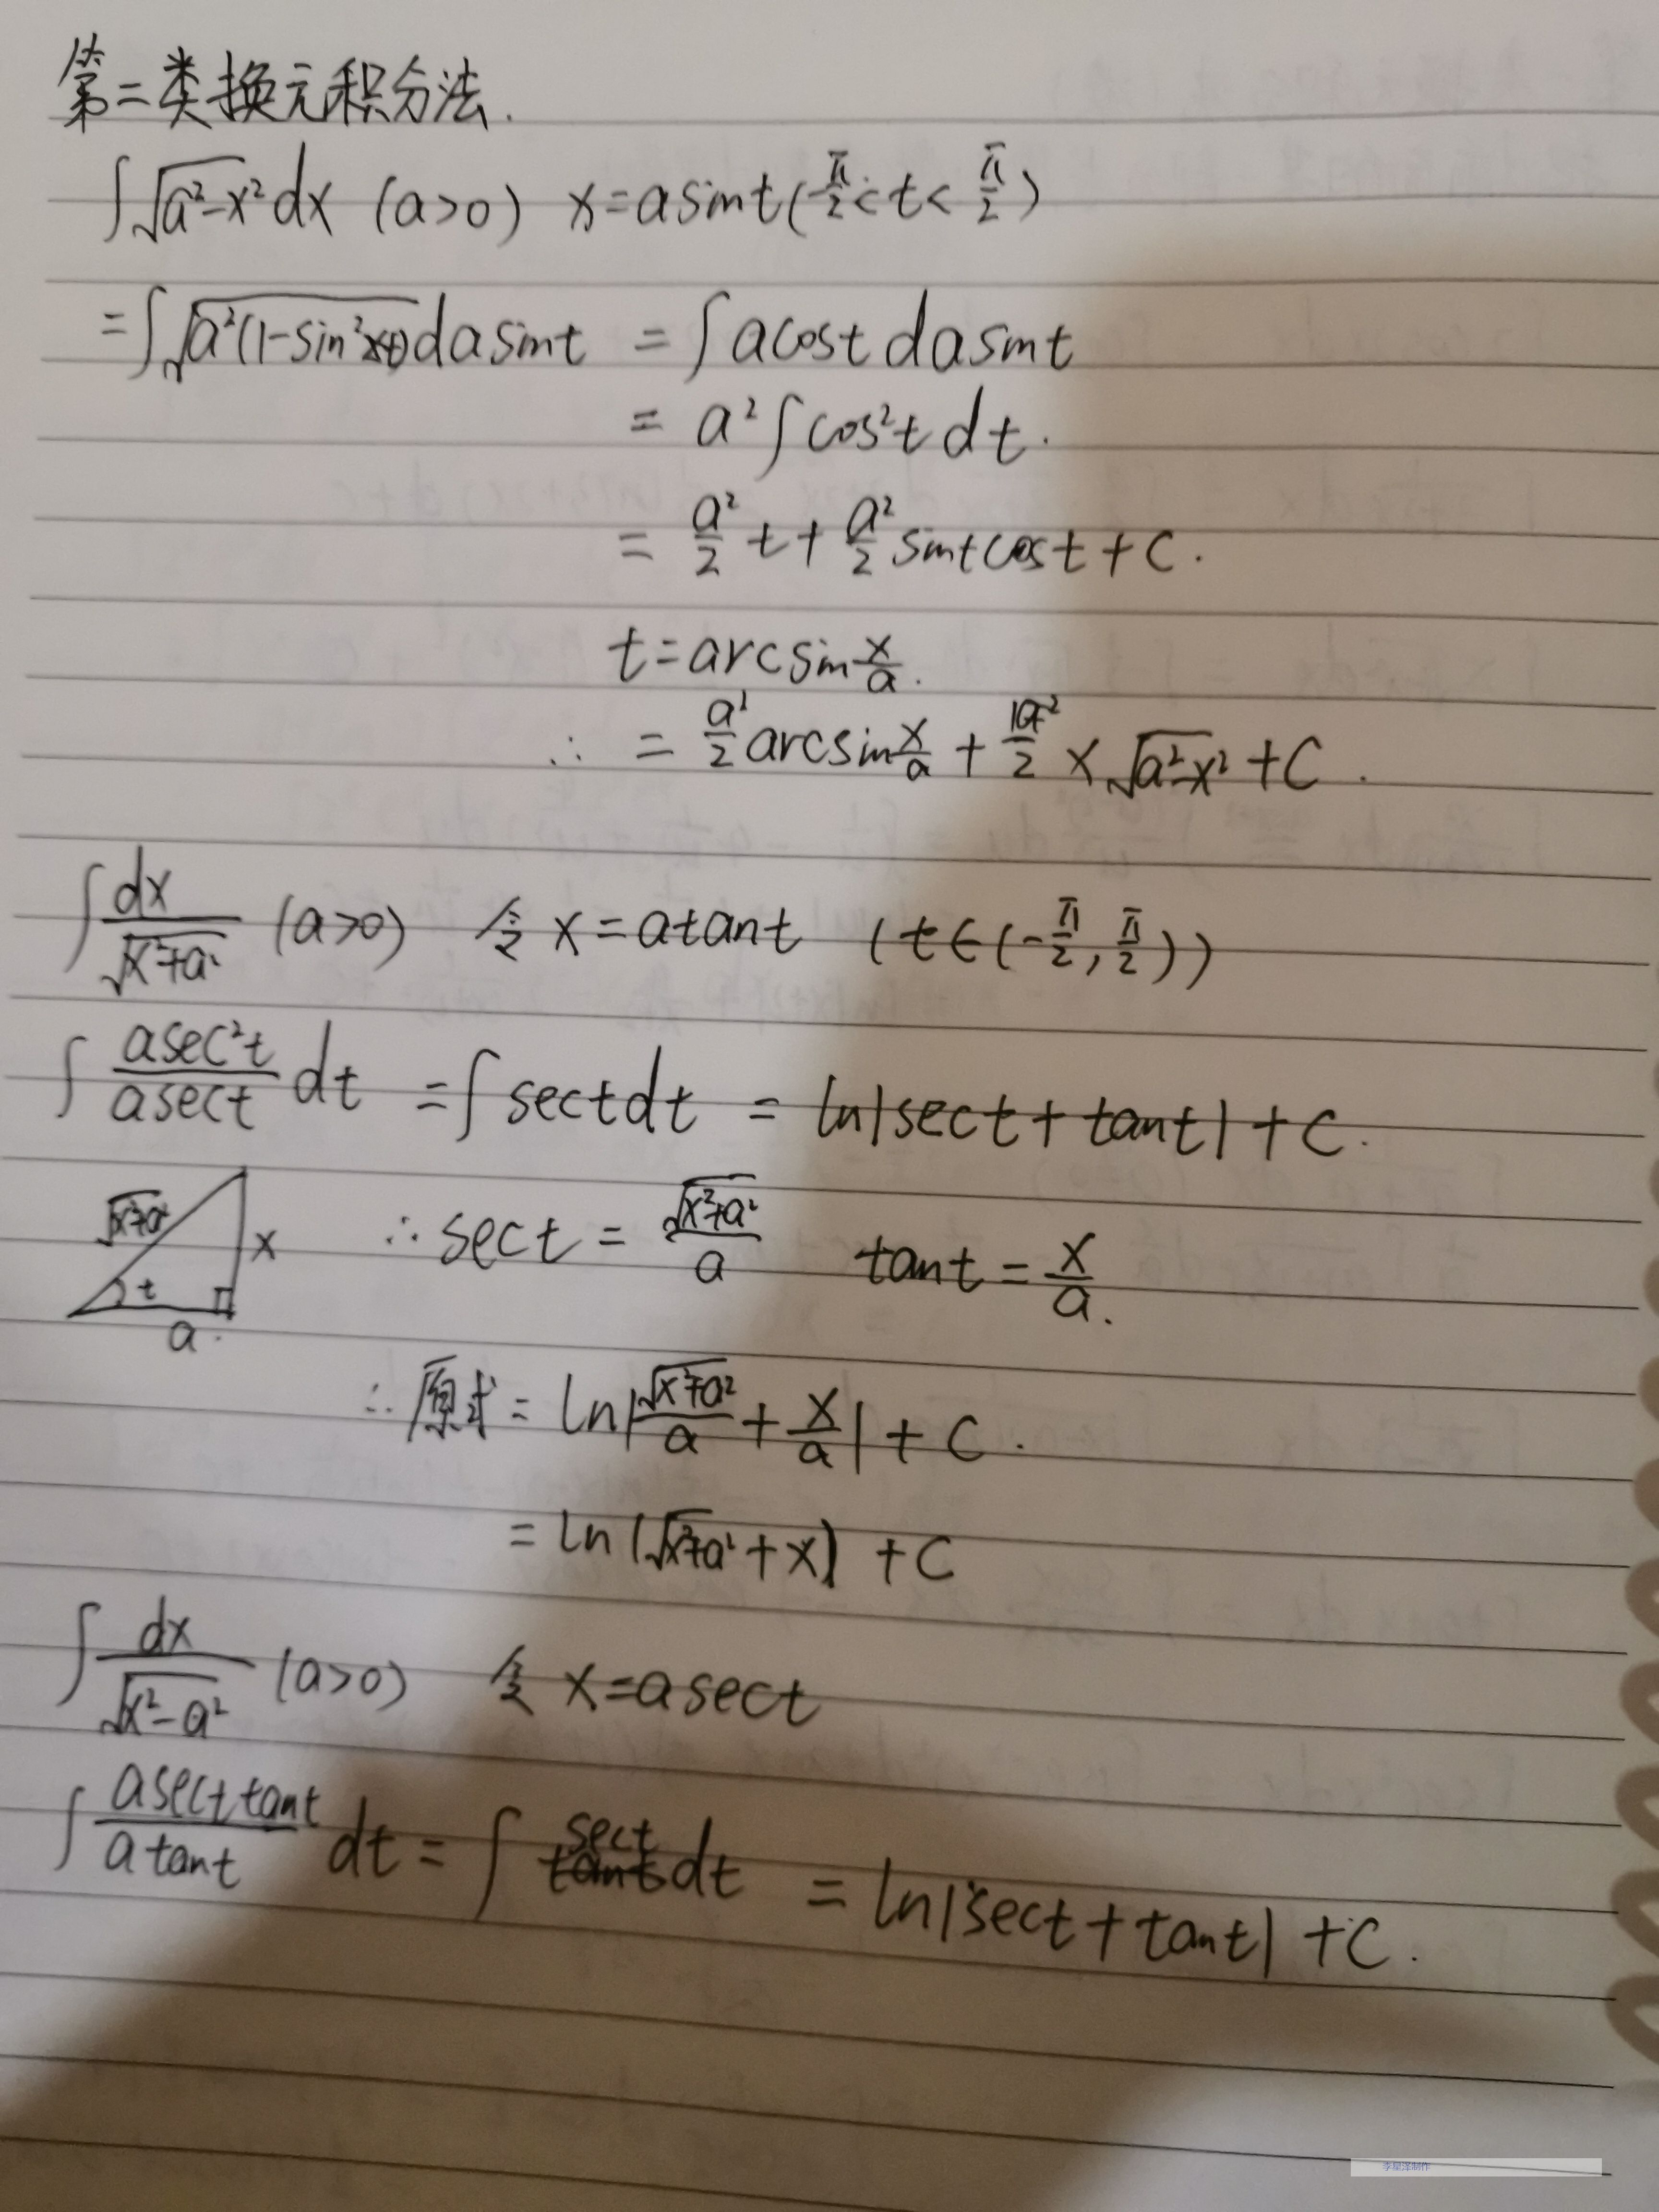 第二类换元积分法.
∫√(a²-x²) dx (a>0) x=asint(-π/2<t<π/2)
=∫√(a²(1-sin²t)) dasint = ∫acost dasint
= a²∫cos²t dt.
= a²/2 t + a²/2 sintcost + C.
t=arcsin x/a.
∴ = a²/2 arcsin x/a + 1/2 x√(a²-x²) + C.
∫dx/√(x²+a²) (a>0) 令 x=atant (t∈(-π/2, π/2))
∫asec²t/asect dt = ∫sectdt = ln|sect+tant|+C.
√(x²+a²) x t a.
∴sect = √(x²+a²)/a tant = x/a.
∴原式 = ln|√(x²+a²)/a + x/a| + C.
= ln(√(x²+a²)+x) + C
∫dx/√(x²-a²) (a>0) 令 x=asect
∫asect tant/atant dt = ∫sect dt = ln|sect+tant| + C.
李星泽制作